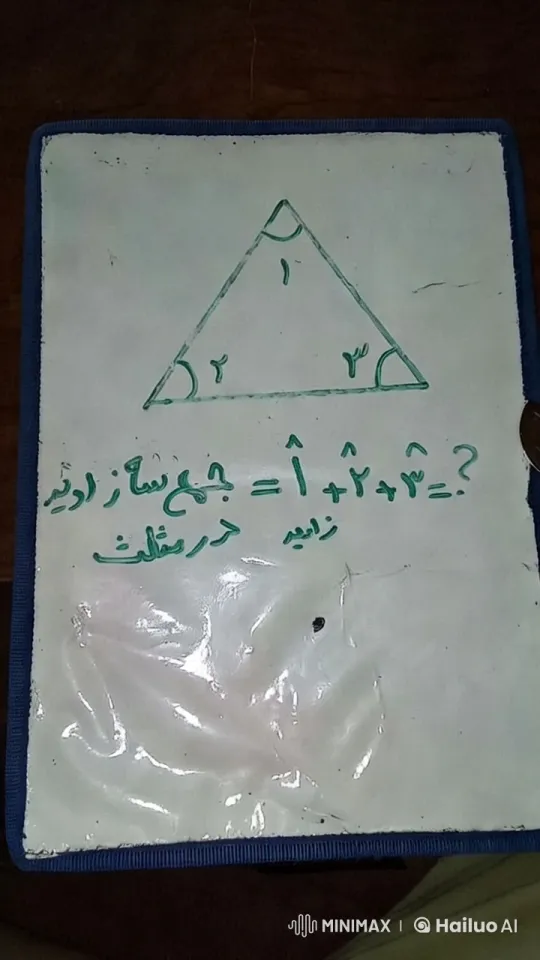 ۱
۲ ۳
جمع سه زاویه = ۱̂ + ۲̂ + ۳̂ = ?
زاویه در مثلث
MINIMAX | Hailuo AI